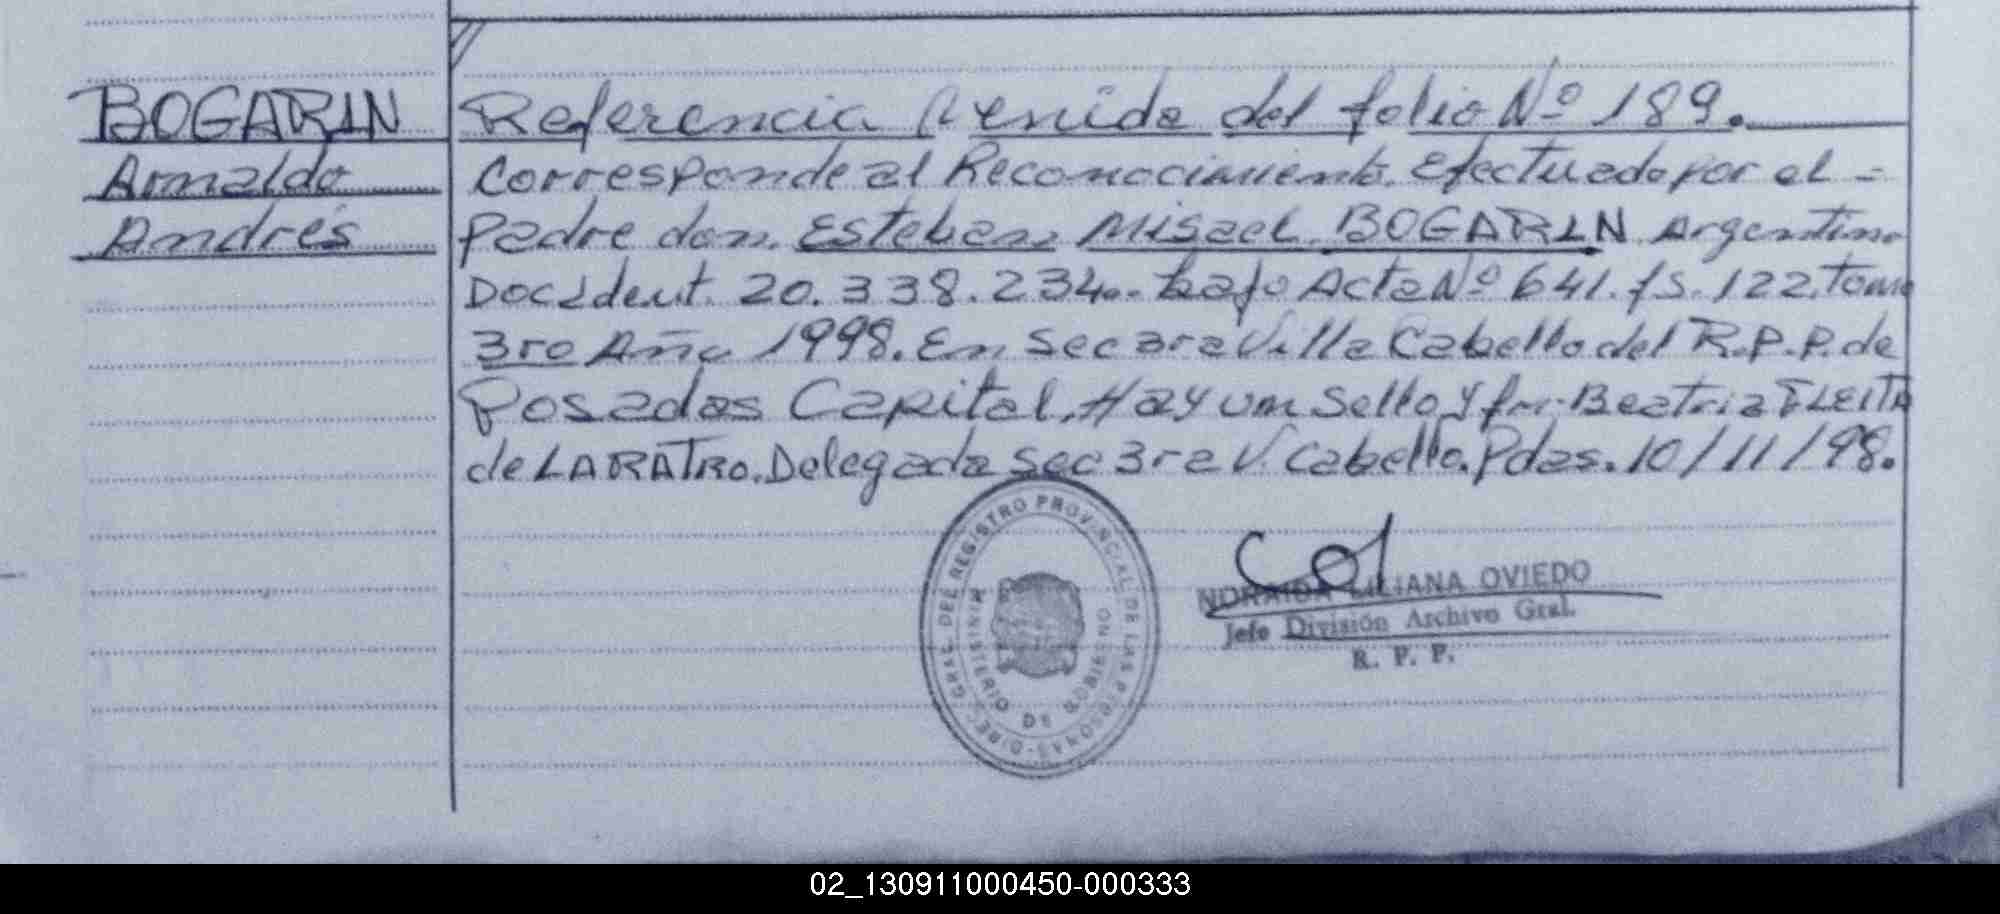 BOGARIN
Arnaldo
Andrés
Referencia Venida del folio Nº 189.
Corresponde al Reconocimiento. Efectuado por el =
padre don. Esteban Misael BOGARIN Argentino
Doc Ident. 20.338.234.- bajo Acta Nº 641. fs. 122. Tomo
3ro Año 1998. En Sec 3ra Villa Cabello del R.P.P. de
Posadas Capital. Hay un Sello y fm. Beatriz FLEITA
de LARATRO. Delegada Sec 3ra V. Cabello. Pdas. 10/11/98.
DIREC. GRAL. DEL REGISTRO PROVINCIAL DE LAS PERSONAS
MINISTERIO DE GOBIERNO
NORAIDA LILIANA OVIEDO
Jefe División Archivo Gral.
R. P. P.
02_130911000450-000333